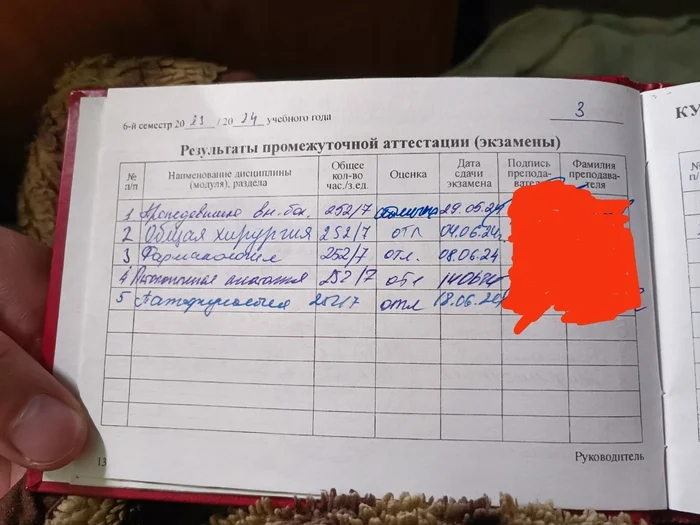 6-й семестр 2023 / 2024 учебного года
3
КУ
Результаты промежуточной аттестации (экзамены)
№ п/п Наименование дисциплины (модуля), раздела Общее кол-во час./з.ед. Оценка Дата сдачи экзамена Подпись препода- Фамилия преподава- теля
1 вн. бол. 252/7 отлично 29.05.24
2 Общая хирургия 252/7 отл 04.06.24.
3 Фармакология 252/7 отл. 08.06.24
4 анатомия 252/7 отл 14.06.24
5 Патфизиология 252/7 отл 18.06.24
13
Руководитель